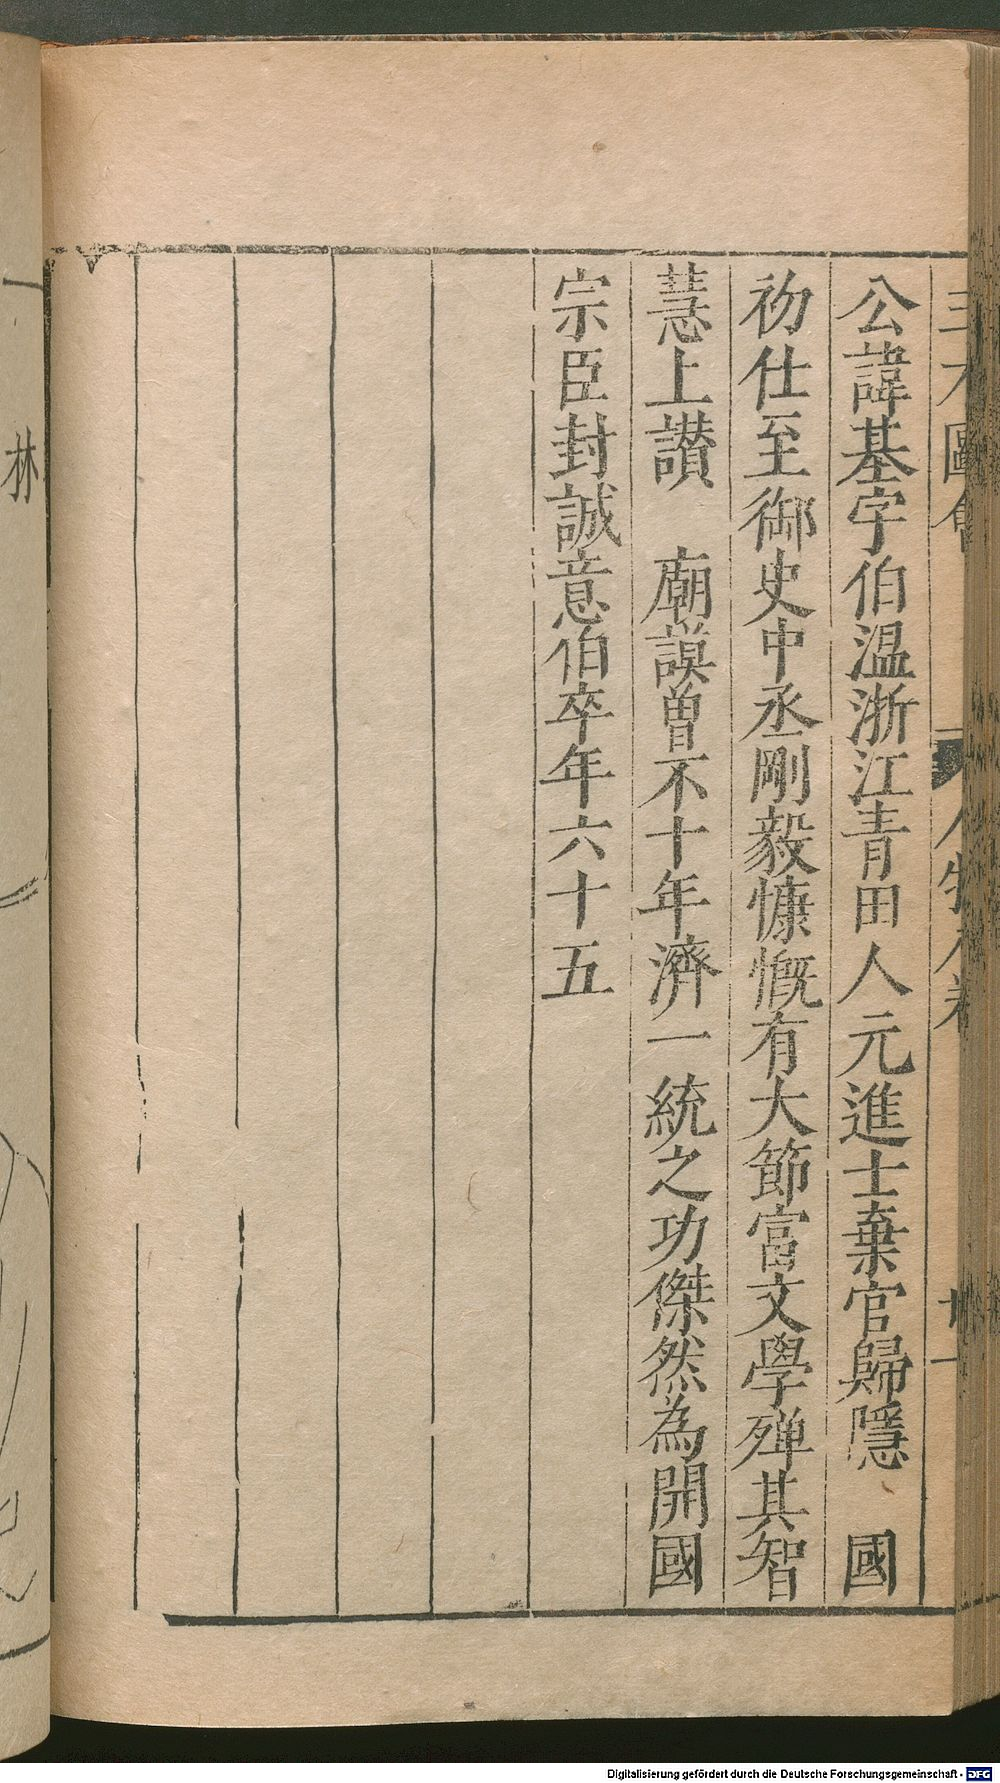 三才圖會 人物八卷 廿一
公諱基字伯温浙江青田人元進士棄官歸隱 國
初仕至御史中丞剛毅慷慨有大節富文學殫其智
慧上讃 廟謨曾不十年濟一統之功傑然為開國
宗臣封誠意伯卒年六十五
林
Digitalisierung gefördert durch die Deutsche Forschungsgemeinschaft - DFG